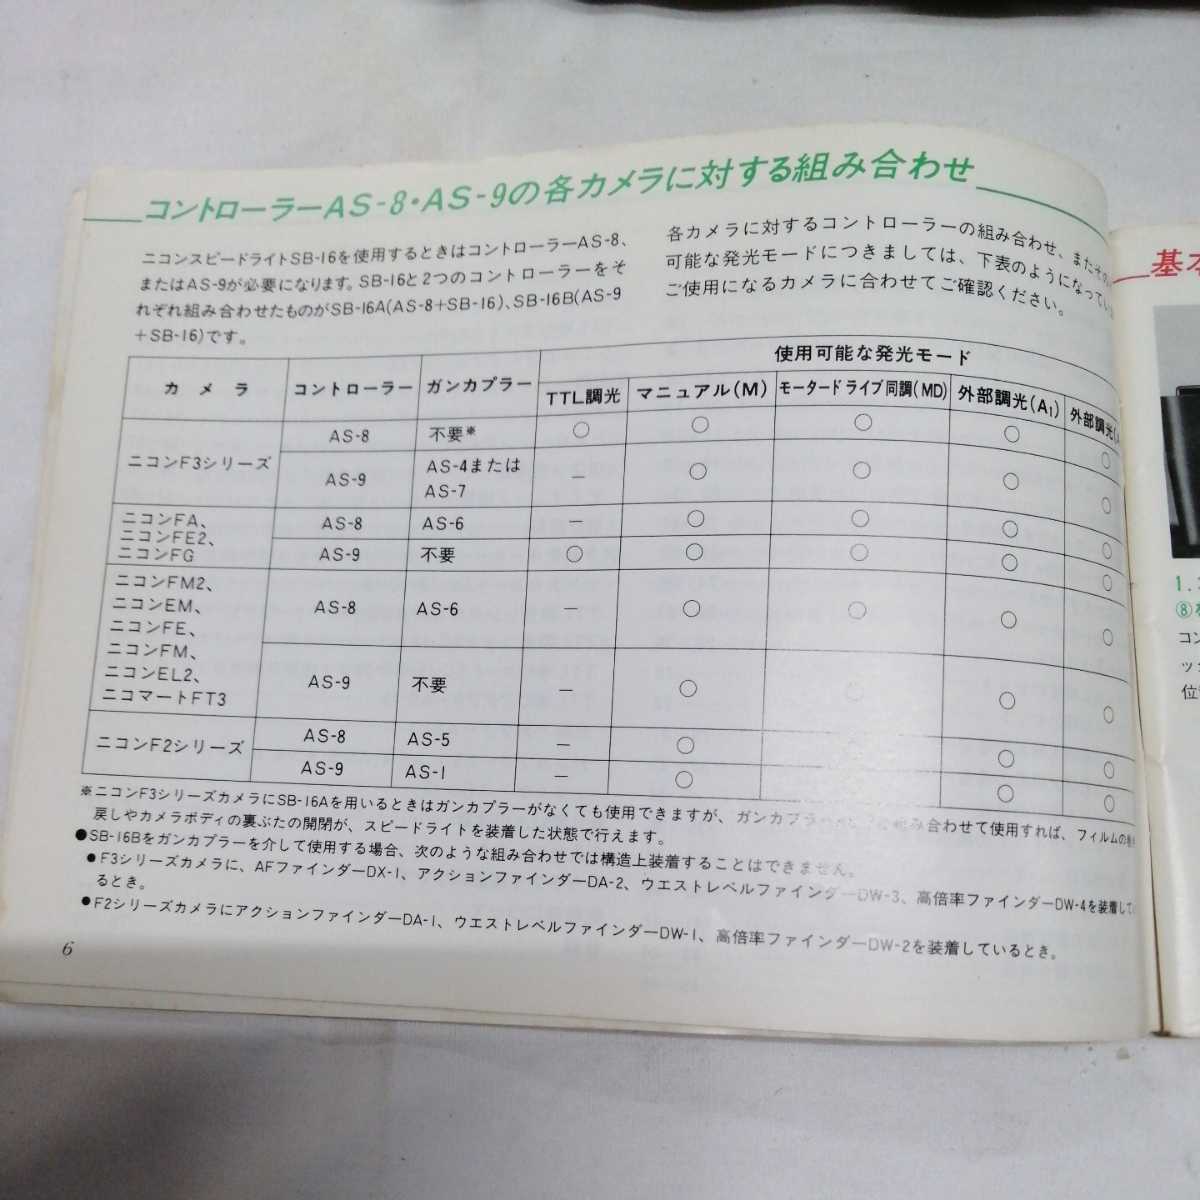 コントローラーAS-8・AS-9の各カメラに対する組み合わせ
ニコンスピードライトSB-16を使用するときはコントローラーAS-8、
またはAS-9が必要になります。SB-16と2つのコントローラーをそ
れぞれ組み合わせたものがSB-16A(AS-8+SB-16)、SB-16B(AS-9
+SB-16)です。
各カメラに対するコントローラーの組み合わせ、またその
可能な発光モードにつきましては、下表のようになってい
ご使用になるカメラに合わせてご確認ください。
カメラ コントローラー ガンカプラー 使用可能な発光モード
TTL調光 マニュアル(M) モータードライブ同調(MD) 外部調光(A1) 外部調光
ニコンF3シリーズ AS-8 不要※ ○ ○ ○ ○ ○
AS-9 AS-4または
AS-7 － ○ ○ ○ ○
ニコンFA、
ニコンFE2、
ニコンFG
AS-8 AS-6 － ○ ○ ○ ○
AS-9 不要 ○ ○ ○ ○ ○
ニコンFM2、
ニコンEM、
ニコンFE、
ニコンFM、
ニコンEL2、
ニコマートFT3
AS-8 AS-6 － ○ ○ ○ ○
AS-9 不要 － ○ ○ ○ ○
ニコンF2シリーズ AS-8 AS-5 － ○ ○ ○
AS-9 AS-1 － ○ ○ ○
※ニコンF3シリーズカメラにSB-16Aを用いるときはガンカプラーがなくても使用できますが、ガンカプラ 組み合わせて使用すれば、フィルムの巻き
戻しやカメラボディの裏ぶたの開閉が、スピードライトを装着した状態で行えます。
●SB-16Bをガンカプラーを介して使用する場合、次のような組み合わせでは構造上装着することはできません。
●F3シリーズカメラに、AFファインダーDX-1、アクションファインダーDA-2、ウエストレベルファインダーDW-3、高倍率ファインダーDW-4を装着して
るとき。
●F2シリーズカメラにアクションファインダーDA-1、ウエストレベルファインダーDW-1、高倍率ファインダーDW-2を装着しているとき。
6
基本
1.
⑧を
コン
ッシ
位置